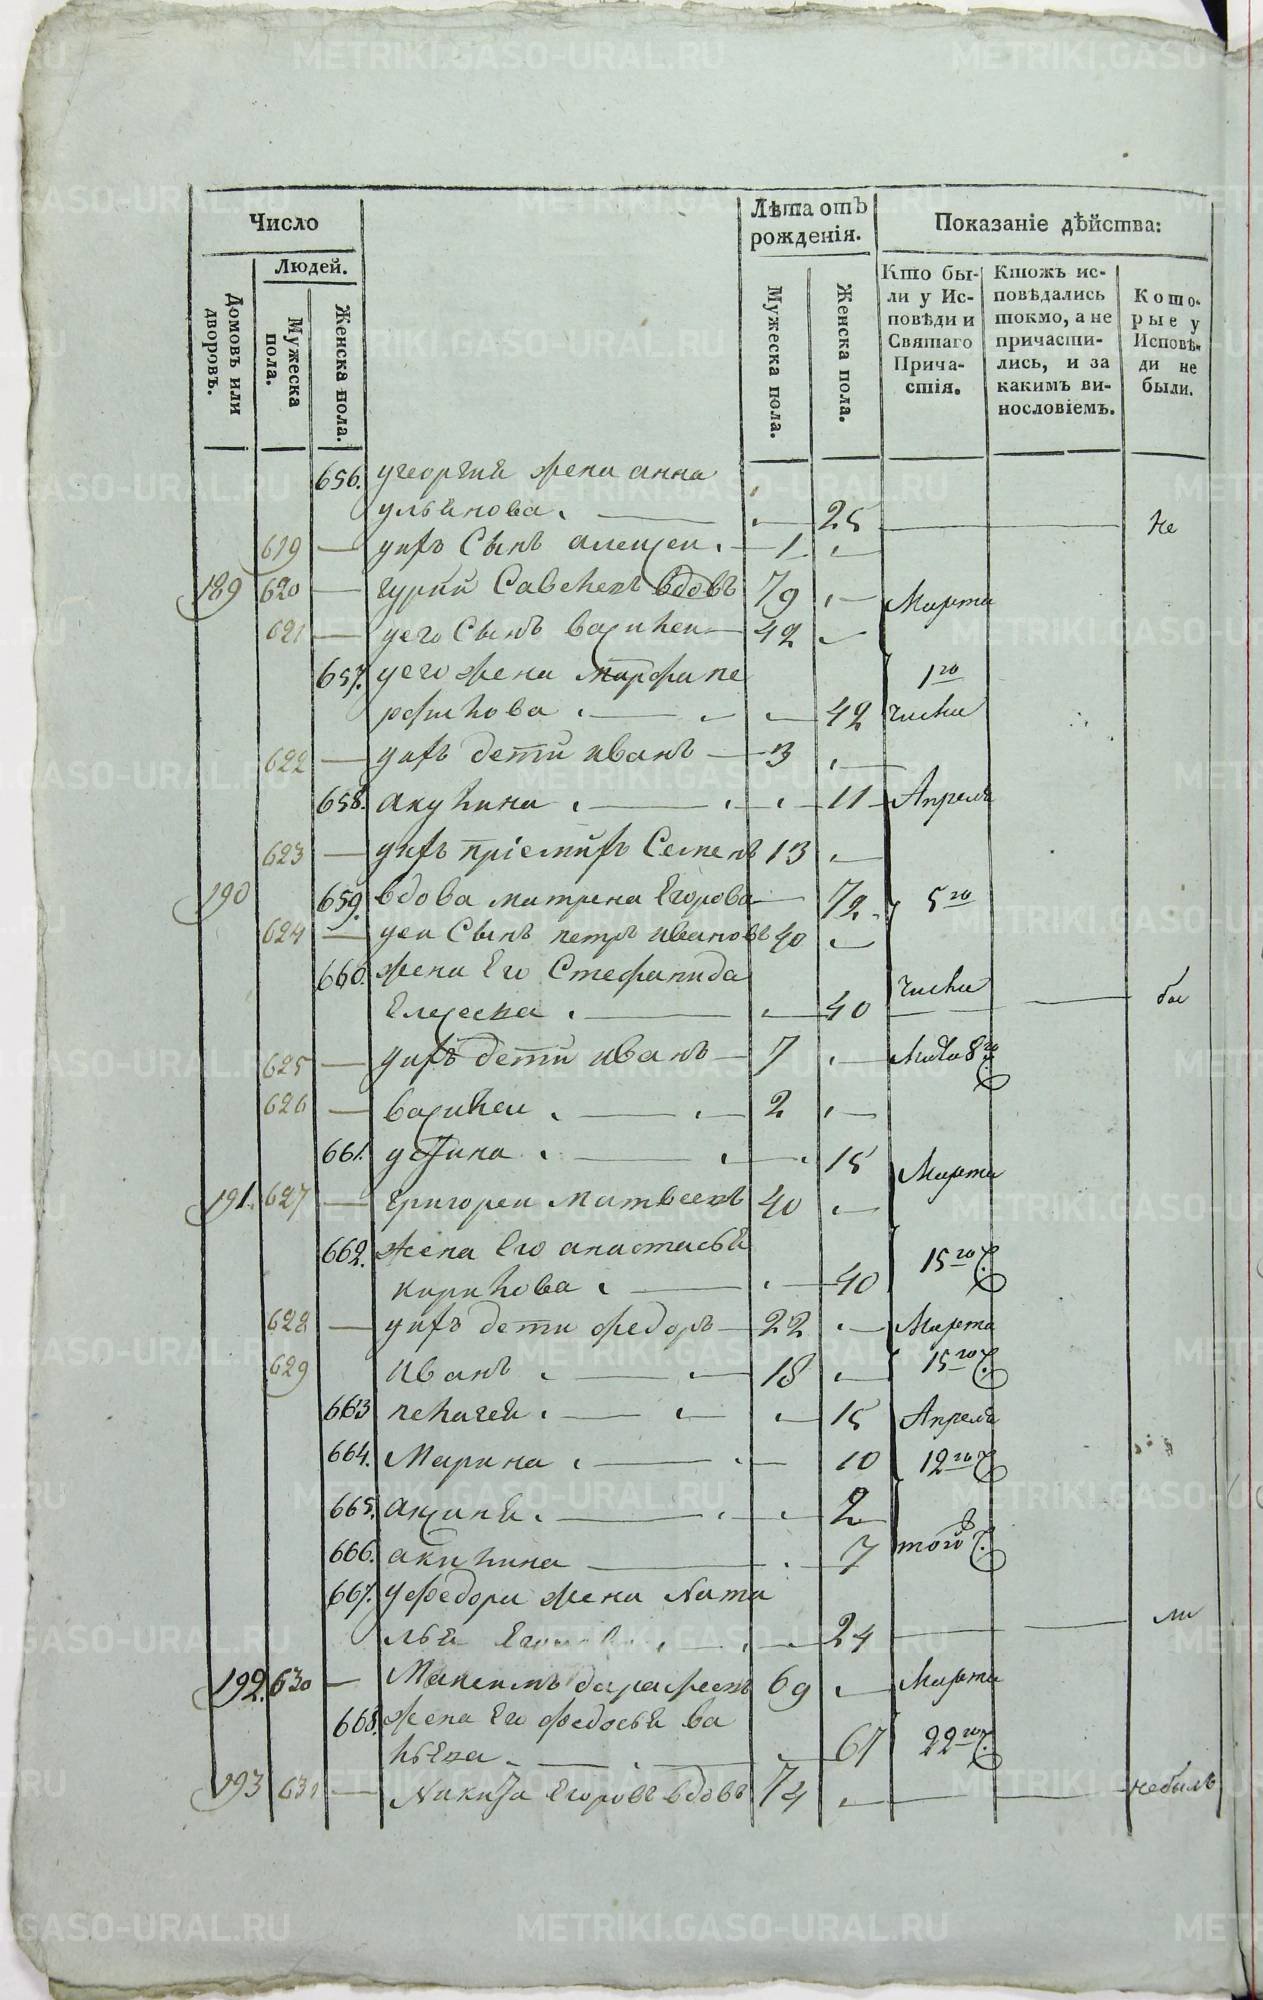 Число
Лѣта отъ рожденія.
Показаніе дѣйства:
Домовъ или дворовъ.
Людей.
Мужеска пола.
Женска пола.
Мужеска пола.
Женска пола.
Кто бы-
ли у Ис-
повѣди и
Святаго
Прича-
стія.
Ктожъ ис-
повѣдались
токмо, а не
причасти-
лись, и за
какимъ ви-
нословіемъ.
Кото-
рые у
Исповѣ-
ди не
были.
656. угеоргия жена анна
ульянова. 25 Не
619 уихъ Сынъ алексеи. 1
189 620 гурий Савельевъ вдовъ 79 Марта
621 уего Сынъ василеи 42
657. уего жена марфа пе 1го
рфилова 42 числа
622 уихъ дети иванъ 3
658. акулина 11 Апреля
623 уихъ приемишъ Семенъ 13
190 659. вдова матрена Егорова 72 5го
624 уеи Сынъ петръ ивановъ 40
660. жена Его Стефанида числа
Елесеева 40 бы
625 уихъ дети иванъ 7 8го
626 василеи 2
661. устина 15 Марта
191. 627 григореи Матвеевъ 40
662. жена Его анастасья 15го ч.
кирилова 40
628 уихъ дети федоръ 22 Марта
629 иванъ 18 15го ч.
663 пелагея 15 Апреля
664. Марина 10 12го ч.
665. аксинья 2
666. акилина 7 того ч.
667. уфедора жена Ната
лья 24 ли
192. 630 Максимъ 69 Марта
668. жена Его федосья ва
67 22го ч.
193 631 Никита Егоровъ вдовъ 74 небылъ
METRIKI.GASO-URAL.RU